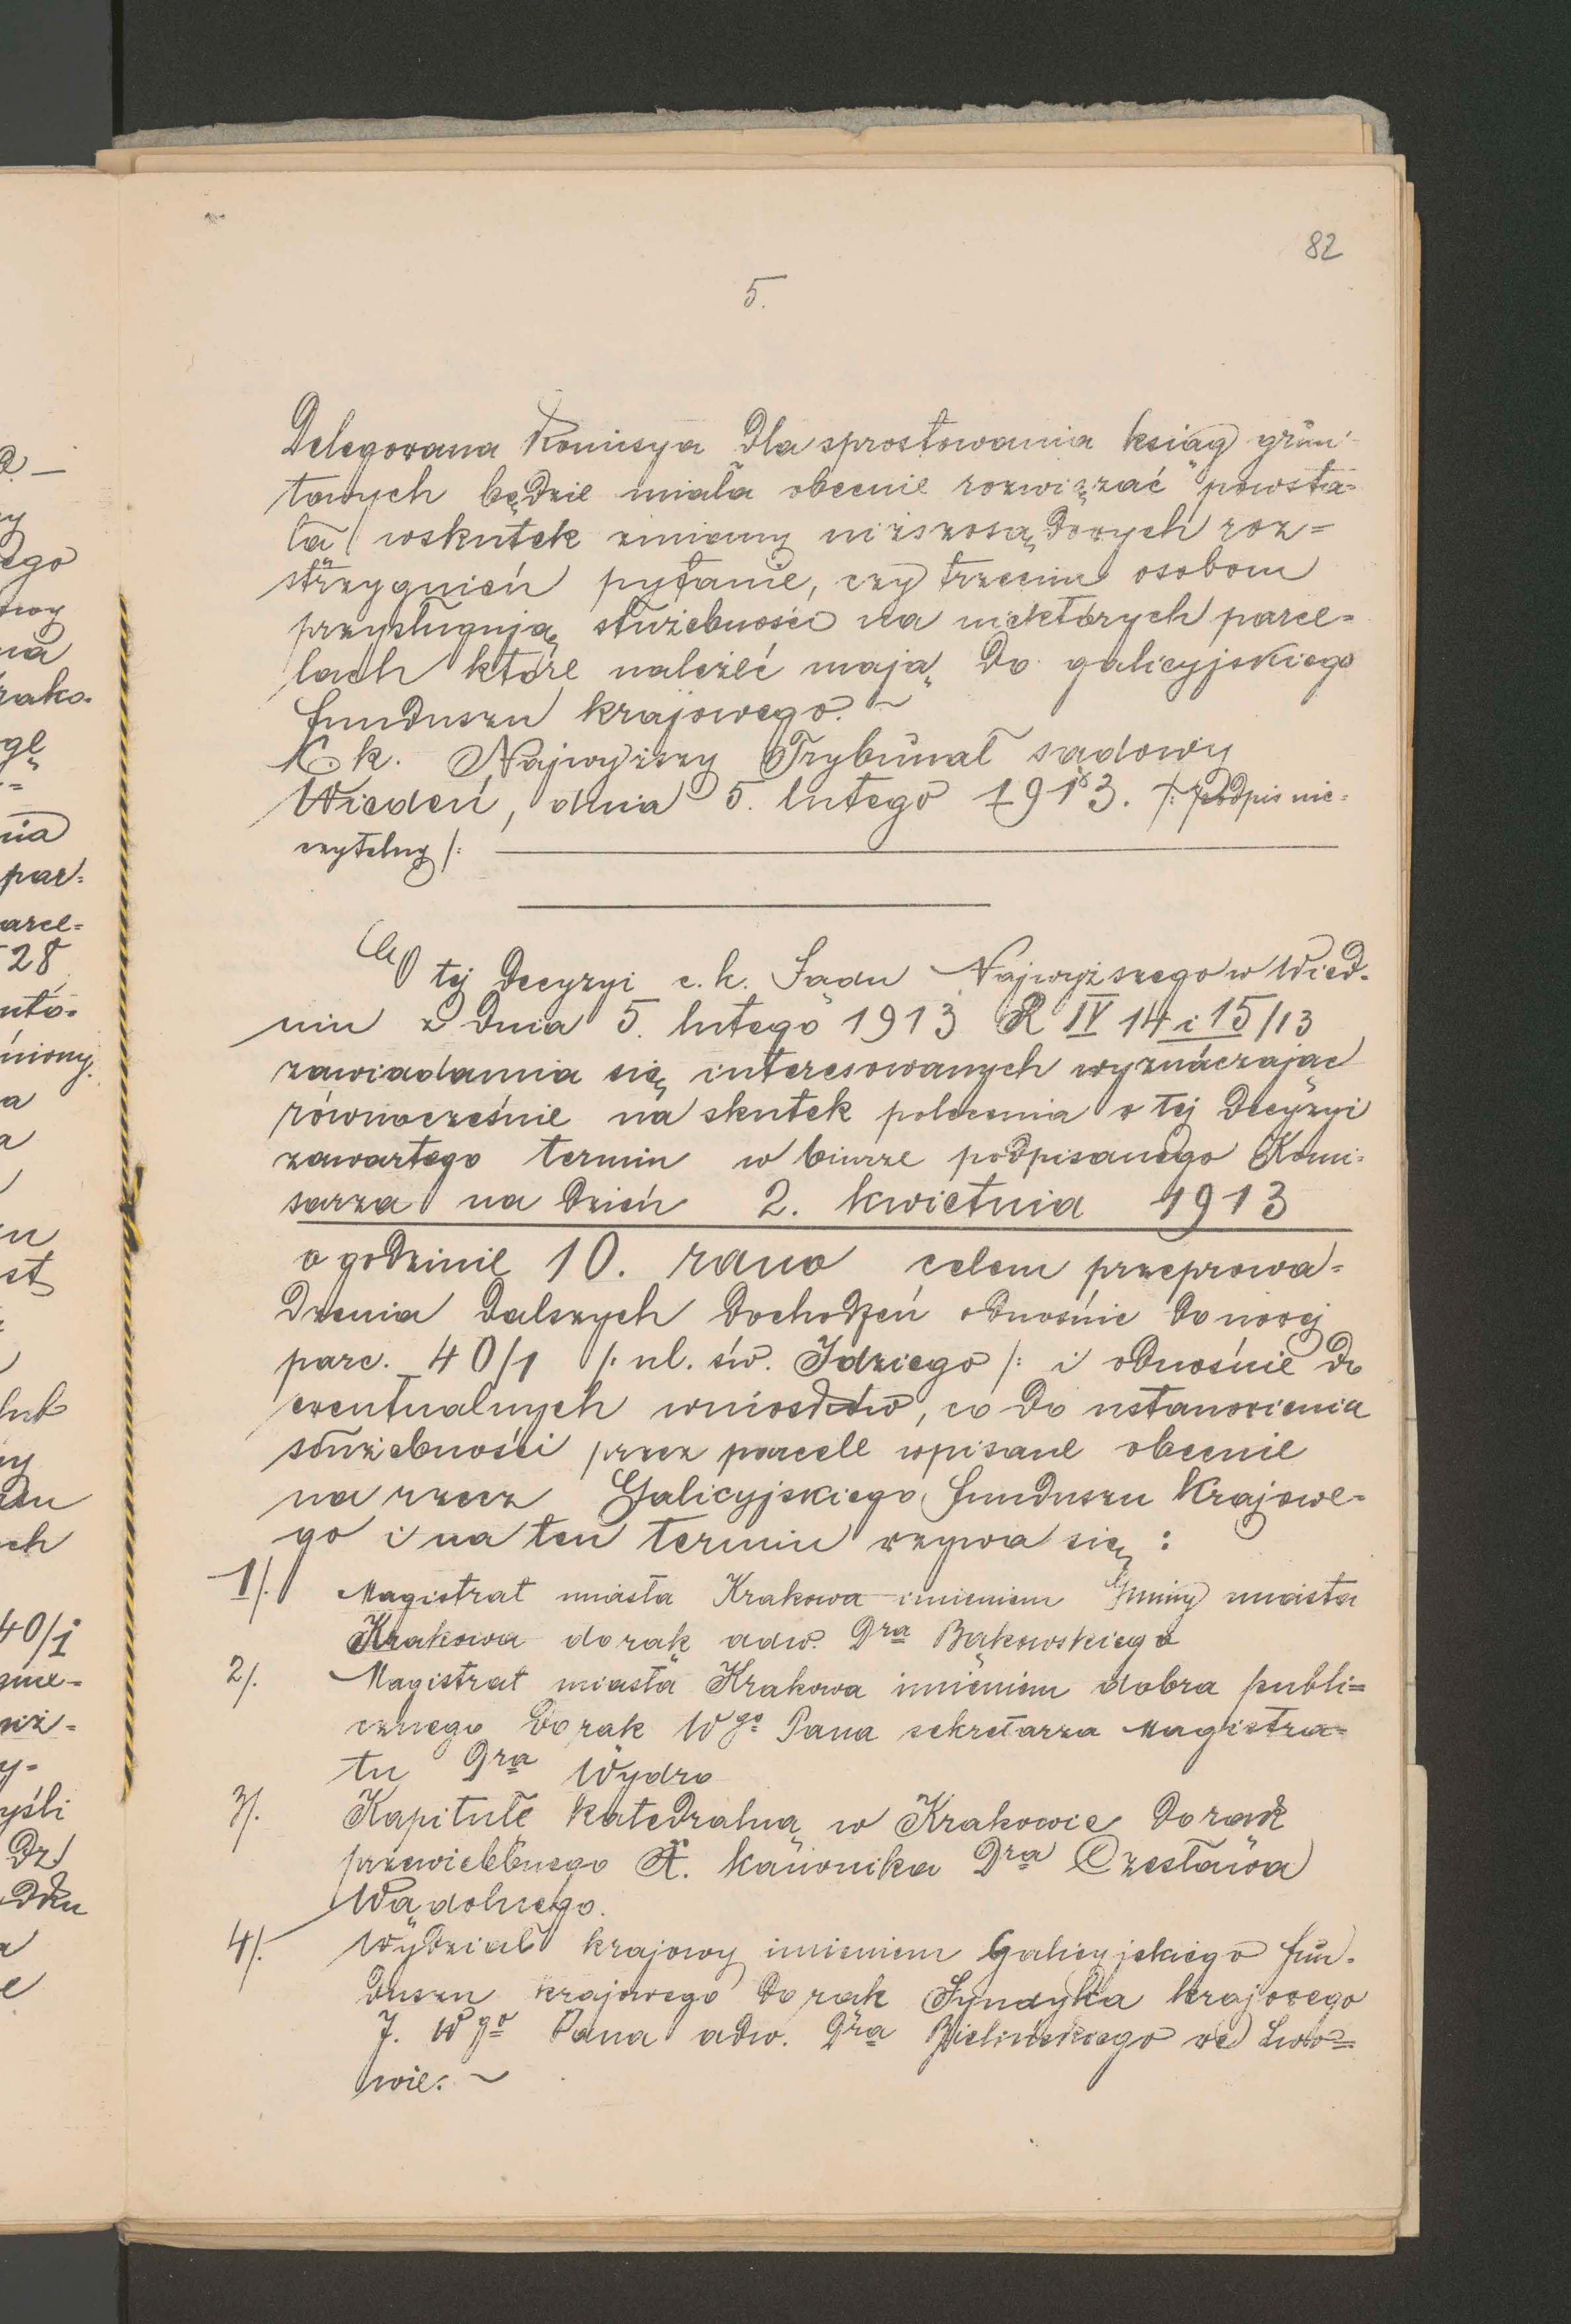 82
5.
Delegowana Komisya dla sprostowania ksiąg grun-
towych będzie miała obecnie rozwiązać powsta-
łą wskutek zmiany niższosądowych roz=
strzygnień pytanie, czy trzecim osobom
przysługują służebności na niektórych parce=
lach które należeć mają do galicyjskiego
funduszu krajowego. ~
K. k. Najwyższy Trybunał sądowy
Wiedeń, dnia 5. lutego 1913. /: Podpis nie=
czytelny /:
O tej decyzyi c. k. Sądu Najwyższego w Wied-
niu z dnia 5. lutego 1913 R IV 14 i 15/13
zawiadamia się interesowanych wyznaczając
równocześnie na skutek polecenia w tej decyzyi
zawartego termin w biurze podpisanego Komi=
sarza na dzień 2. kwietnia 1913
o godzinie 10. rano celem przeprowa=
dzenia dalszych dochodzeń odnośnie do nowej
parc. 40/1 /: ul. św. Idziego /: i odnośnie do
ewentualnych wniosków, co do ustanowienia
służebności przez parcele wpisane obecnie
na rzecz Galicyjskiego funduszu Krajowe-
go i na ten termin wzywa się :
1/. Magistrat miasta Krakowa imieniem Gminy miasta
Krakowa do rąk adw. Dra Bąkowskiego
2/. Magistrat miasta Krakowa imieniem dobra publi=
cznego do rąk Wgo Pana sekretarza Magistra=
tu Dra Wydro
3/. Kapitułę katedralną w Krakowie do rąk
przewielebnego X. kanonika Dra Czesława
Wądolnego.
4/. Wydział krajowy imieniem Galicyjskiego fun-
duszu krajowego do rąk Syndyka krajowego
J. Wgo Pana adw. Dra Bielińskiego we Lwo=
wie. ~